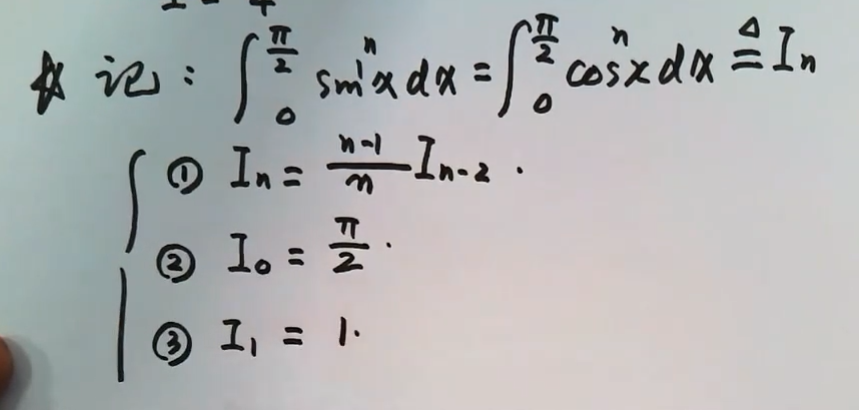 记: ∫₀^(π/2) sinⁿx dx = ∫₀^(π/2) cosⁿx dx ≜ Iₙ
① Iₙ = (n-1)/n Iₙ₋₂.
② I₀ = π/2.
③ I₁ = 1.